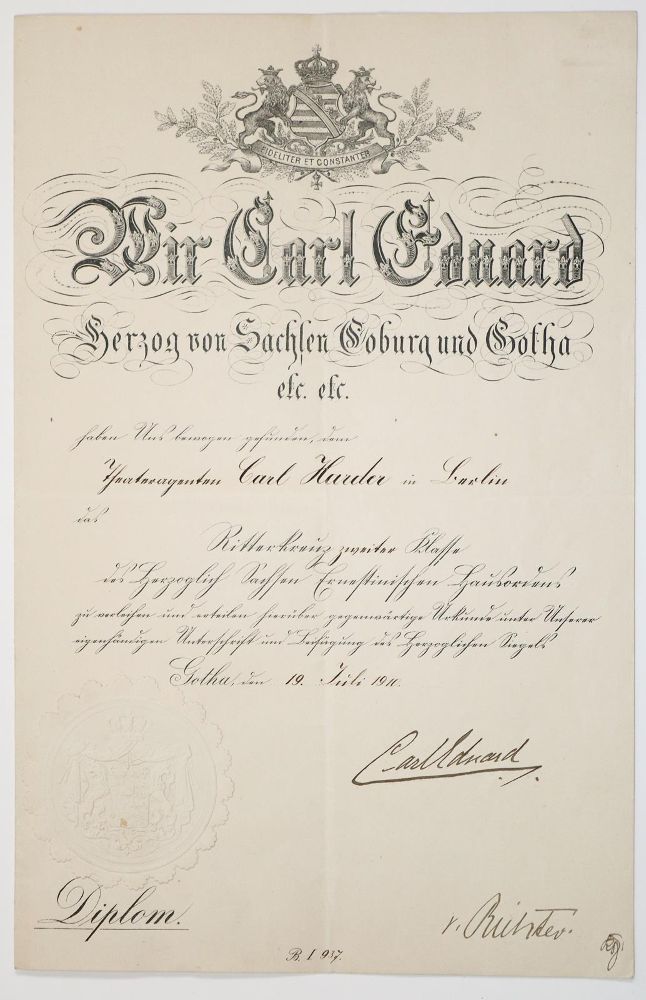 FIDELITER ET CONSTANTER
Wir Carl Eduard
Herzog von Sachsen Coburg und Gotha
etc. etc.
haben Uns bewogen gefunden, dem
Theateragenten Carl Harder in Berlin
das
Ritterkreuz zweiter Klasse
des Herzoglich Sachsen Ernestinischen Hausordens
zu verleihen und erteilen hierüber gegenwärtige Urkunde unter Unserer
eigenhändigen Unterschrift und Beifügung des Herzoglichen Siegels
Gotha, den 19. Juli 1910.
Carl Eduard
Diplom.
v. Richter.
B. I 937.